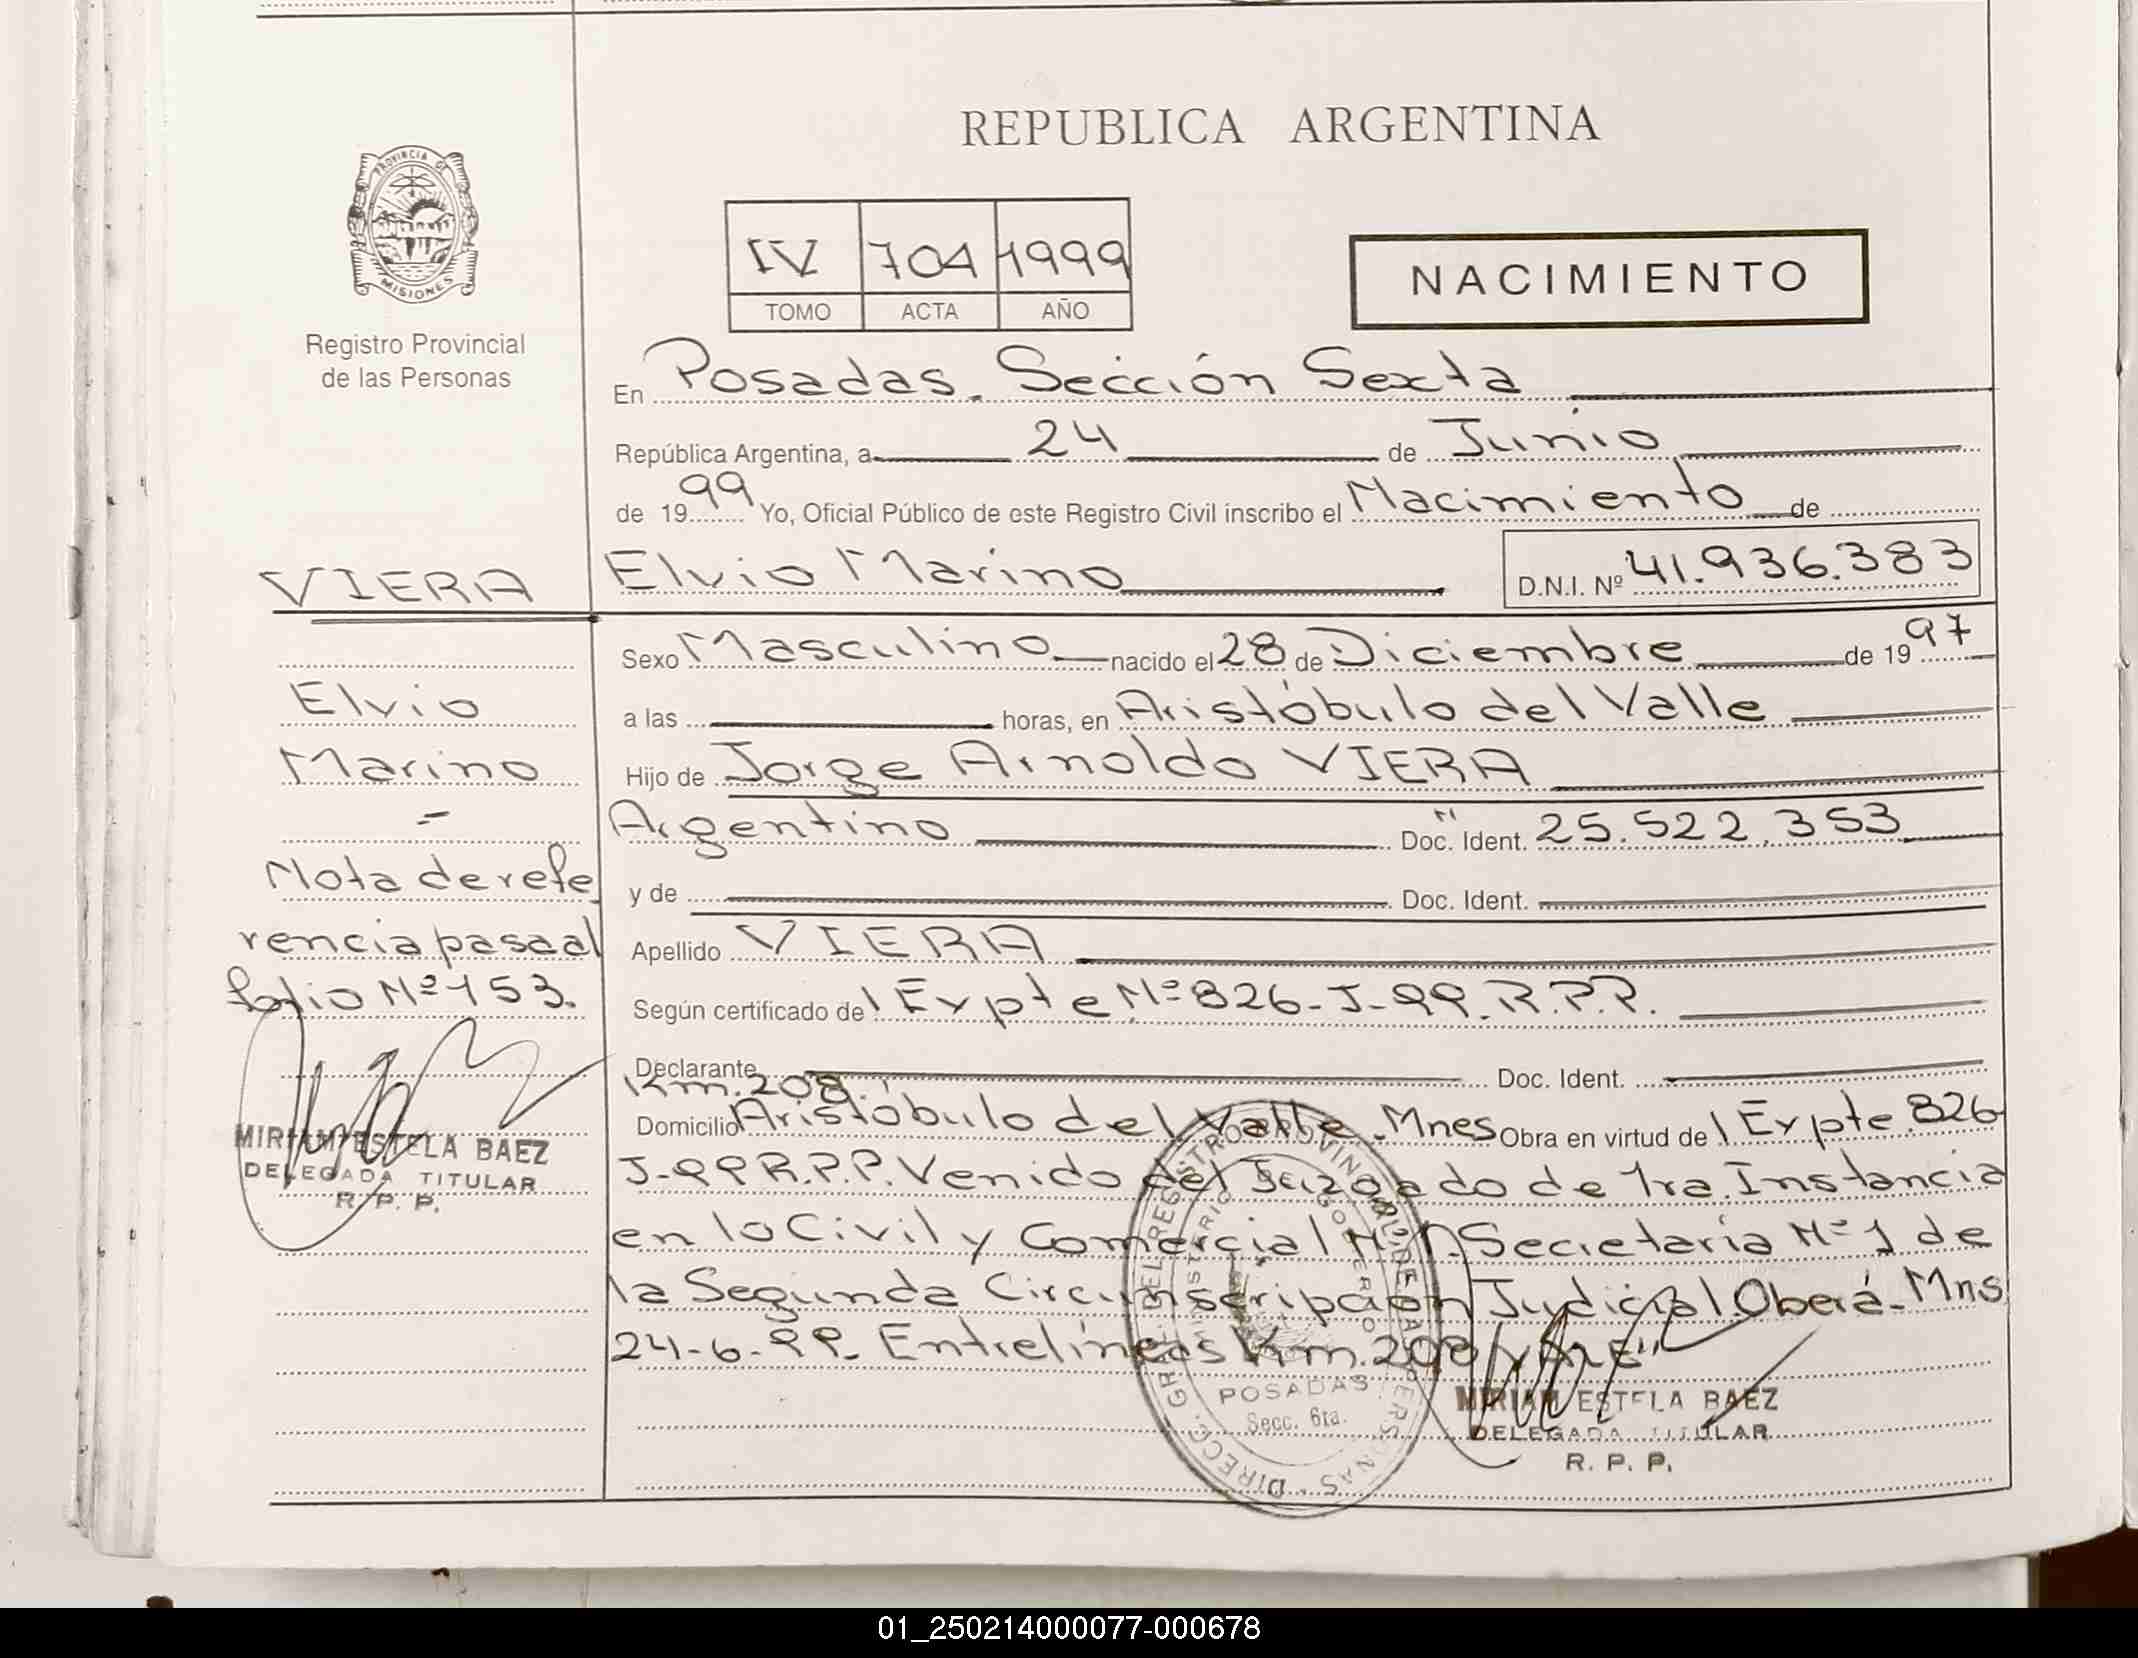 REPUBLICA ARGENTINA
PROVINCIA DE
MISIONES
Registro Provincial
de las Personas
IV 704 1999
TOMO ACTA AÑO
NACIMIENTO
En Posadas. Sección Sexta
República Argentina, a 24 de Junio
de 1999 Yo, Oficial Público de este Registro Civil inscribo el Nacimiento de
VIERA
Elvio Marino D.N.I. Nº 41.936.383
Sexo Masculino nacido el 28 de Diciembre de 1997
a las horas, en Aristóbulo del Valle
Hijo de Jorge Arnoldo VIERA
Argentino Doc. Ident. 25.522.353
y de Doc. Ident.
Apellido VIERA
Según certificado del Expte Nº 826-J-99.R.P.P.
Declarante Doc. Ident.
Km.208.
Domicilio Aristóbulo del Valle.Mnes Obra en virtud del Expte.826
J-99R.P.P.Venido del Juzgado de 1ra.Instancia
en lo Civil y Comercial Nº1.Secretaría Nº1 de
la Segunda Circunscripción Judicial.Oberá-Mns
24-6-99. Entrelíneas Km.208 "VALE"
Elvio
Marino
-
Nota de refe
rencia pasa al
folio Nº153.
MIRIAM ESTELA BAEZ
DELEGADA TITULAR
R. P. P.
DIRECC. GRAL. DEL REGISTRO PROVINCIAL DE LAS PERSONAS
MINISTERIO GOBIERNO
POSADAS
Secc. 6ta.
MIRIAM ESTELA BAEZ
DELEGADA TITULAR
R. P. P.
01_250214000077-000678